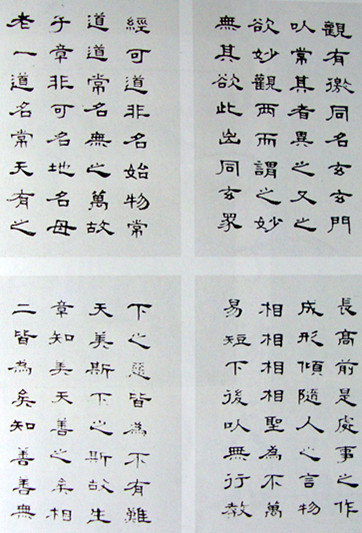 老子道經
一章道可
道非常道
名可名非
常名無名
天地之始
有名萬物
之母故常
無欲以觀
其妙常有
欲觀其徼
此兩者同
出而異名
同謂之玄
玄之又玄
眾妙之門
二章天下
皆知美之
為美斯惡
矣天下皆
知善之為
善之斯不
善矣故有
無相生難
易相成長
短相形高
下相傾前
後相隨是
以聖人處
無為之事
行不言之
教萬物作